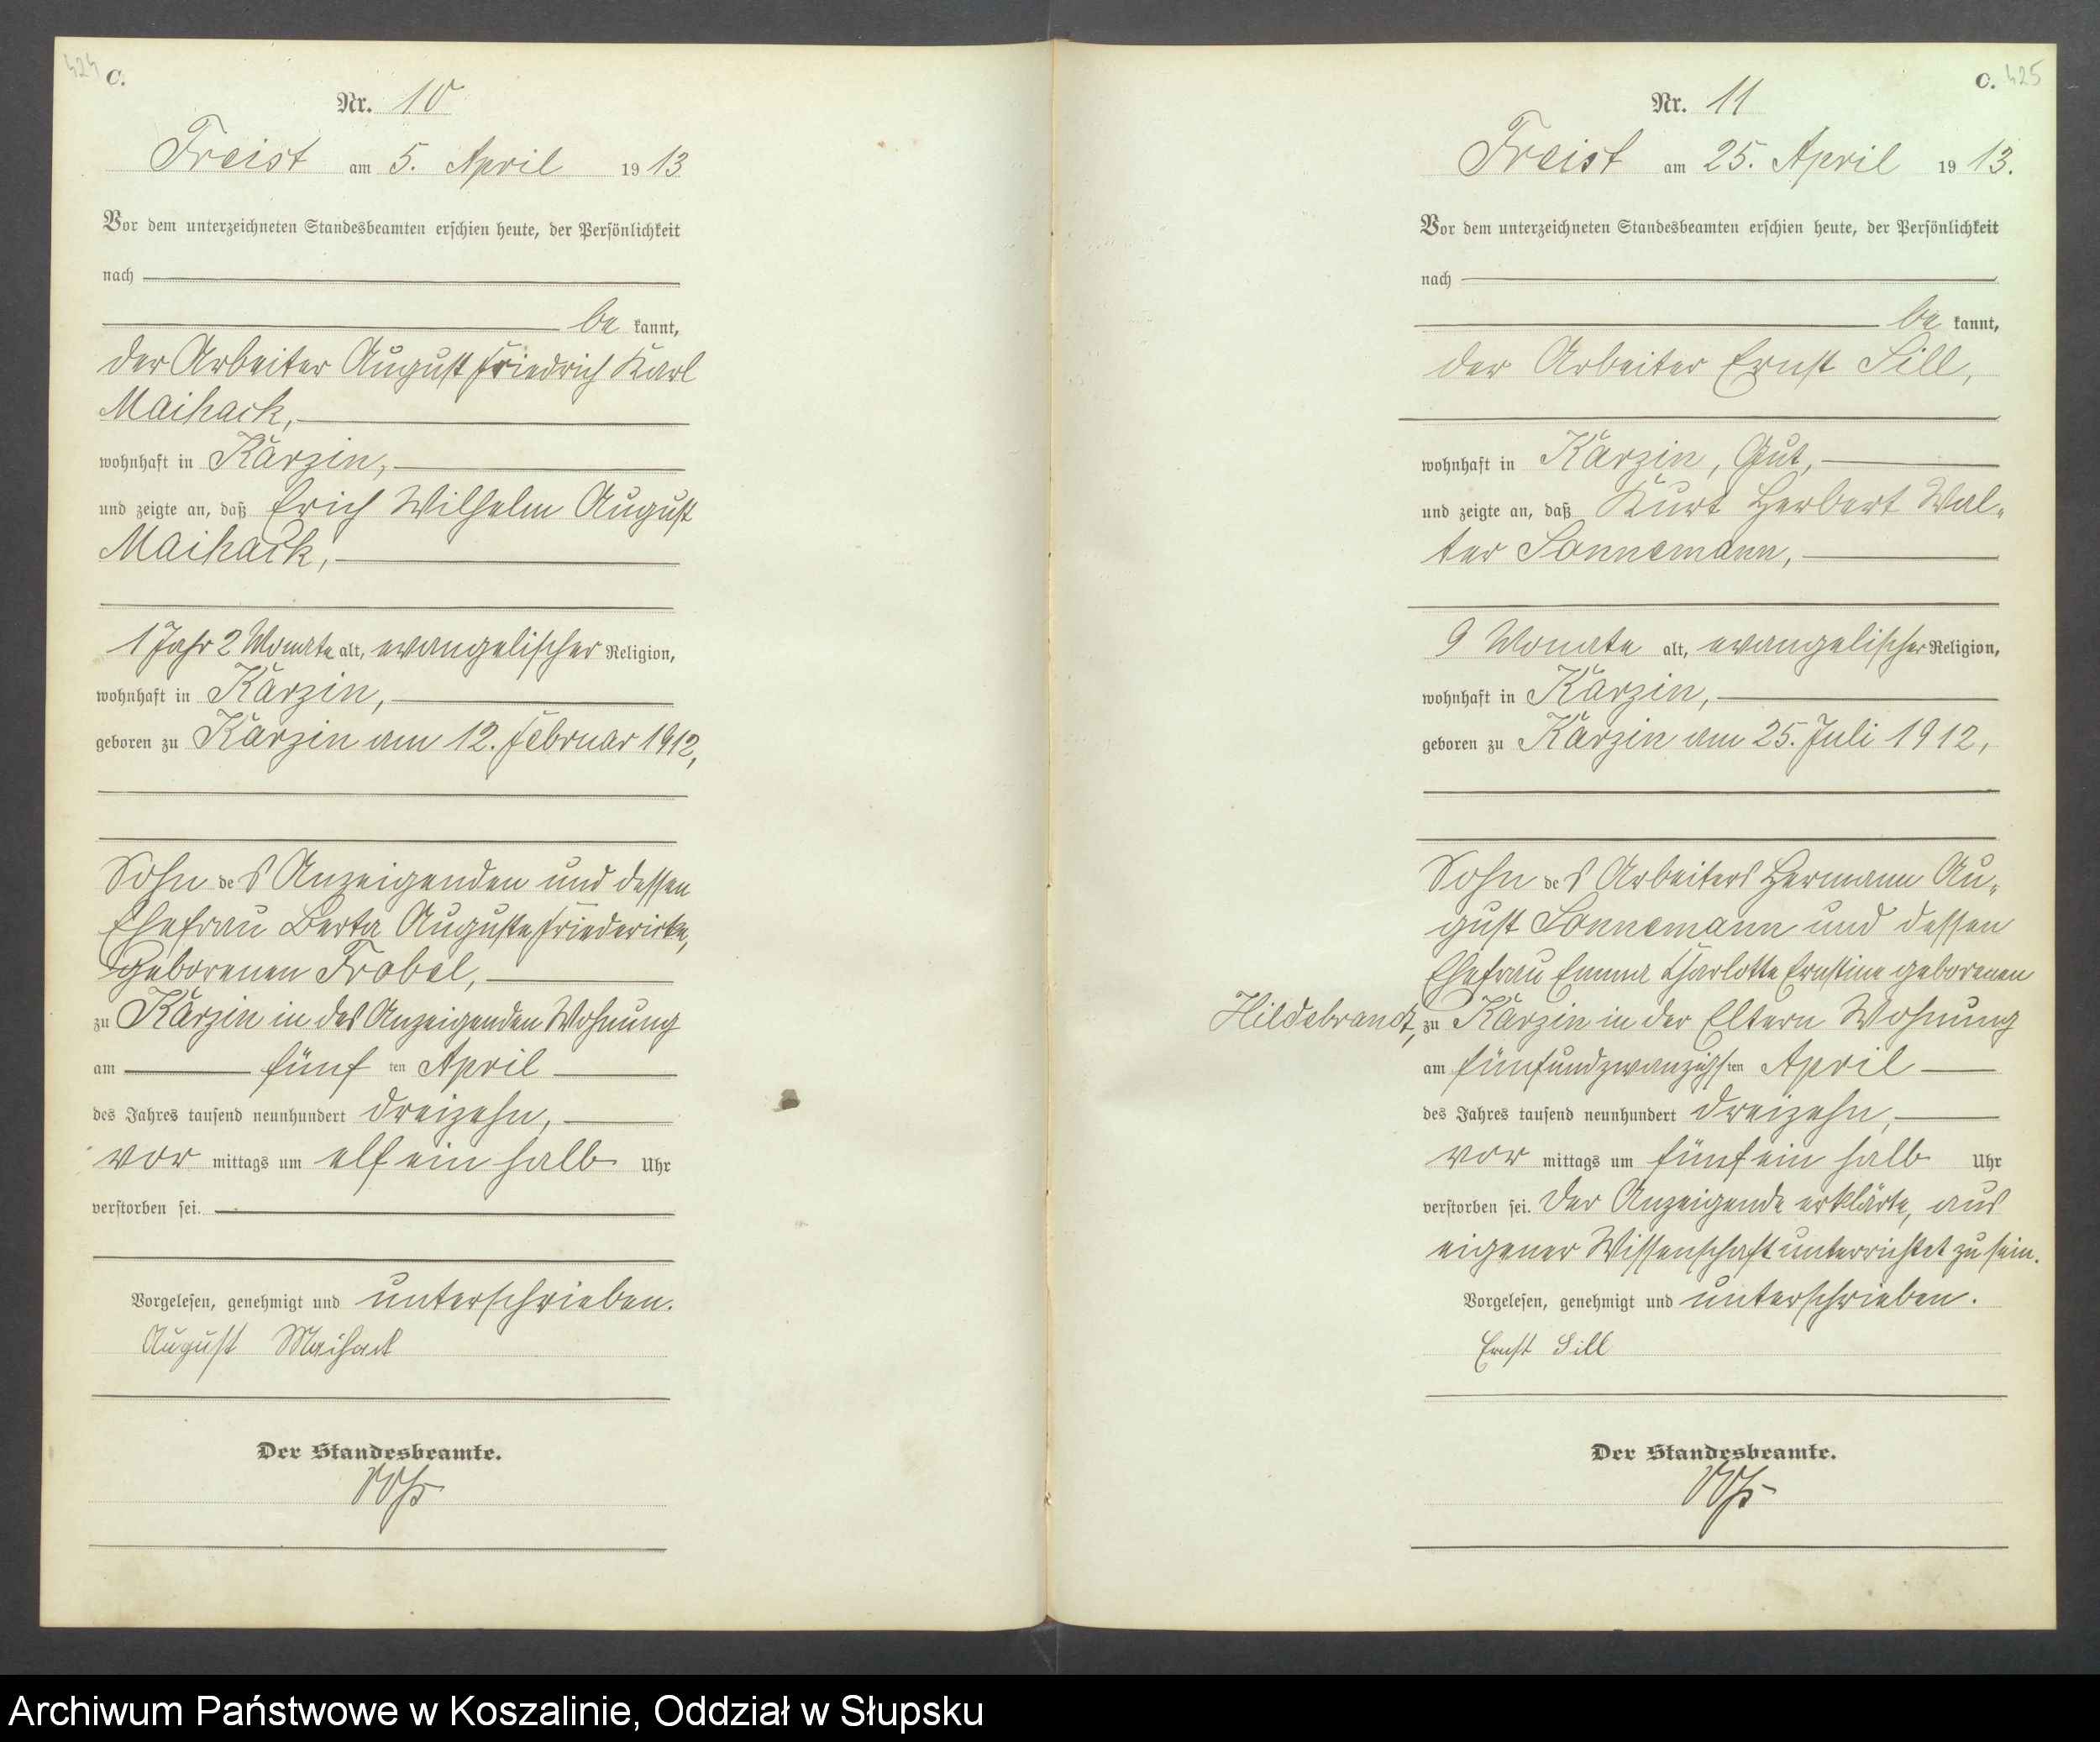 424 C.
Nr. 10
Freist am 5. April 1913
Vor dem unterzeichneten Standesbeamten erschien heute, der Persönlichkeit
nach
be kannt,
der Arbeiter August Friedrich Karl
Maihack,
wohnhaft in Karzin,
und zeigte an, daß Erich Wilhelm August
Maihack,
1 Jahr 2 Monate alt, evangelischer Religion,
wohnhaft in Karzin,
geboren zu Karzin am 12. Februar 1912,
Sohn des Anzeigenden und dessen
Ehefrau Berta Auguste Friedericke,
geborenen Frobel,
zu Karzin in des Anzeigenden Wohnung
am fünf ten April
des Jahres tausend neunhundert dreizehn,
vor mittags um elf ein halb Uhr
verstorben sei.
Vorgelesen, genehmigt und unterschrieben.
August Maihack
Der Standesbeamte.
C. 425
Nr. 11
Freist am 25. April 1913.
Vor dem unterzeichneten Standesbeamten erschien heute, der Persönlichkeit
nach
be kannt,
der Arbeiter Ernst Sill,
wohnhaft in Karzin, Gut,
und zeigte an, daß Kurt Herbert Wal-
ter Sonnemann,
9 Monate alt, evangelischer Religion,
wohnhaft in Karzin,
geboren zu Karzin am 25. Juli 1912,
Sohn des Arbeiters Hermann Au-
gust Sonnemann und dessen
Ehefrau Emma Charlotte Ernstine geborenen
Hildebrandt, zu Karzin in der Eltern Wohnung
am fünfundzwanzigsten April
des Jahres tausend neunhundert dreizehn,
vor mittags um fünf ein halb Uhr
verstorben sei. Der Anzeigende erklärte, aus
eigener Wissenschaft unterrichtet zu sein.
Vorgelesen, genehmigt und unterschrieben.
Ernst Sill
Der Standesbeamte.
Archiwum Państwowe w Koszalinie, Oddział w Słupsku